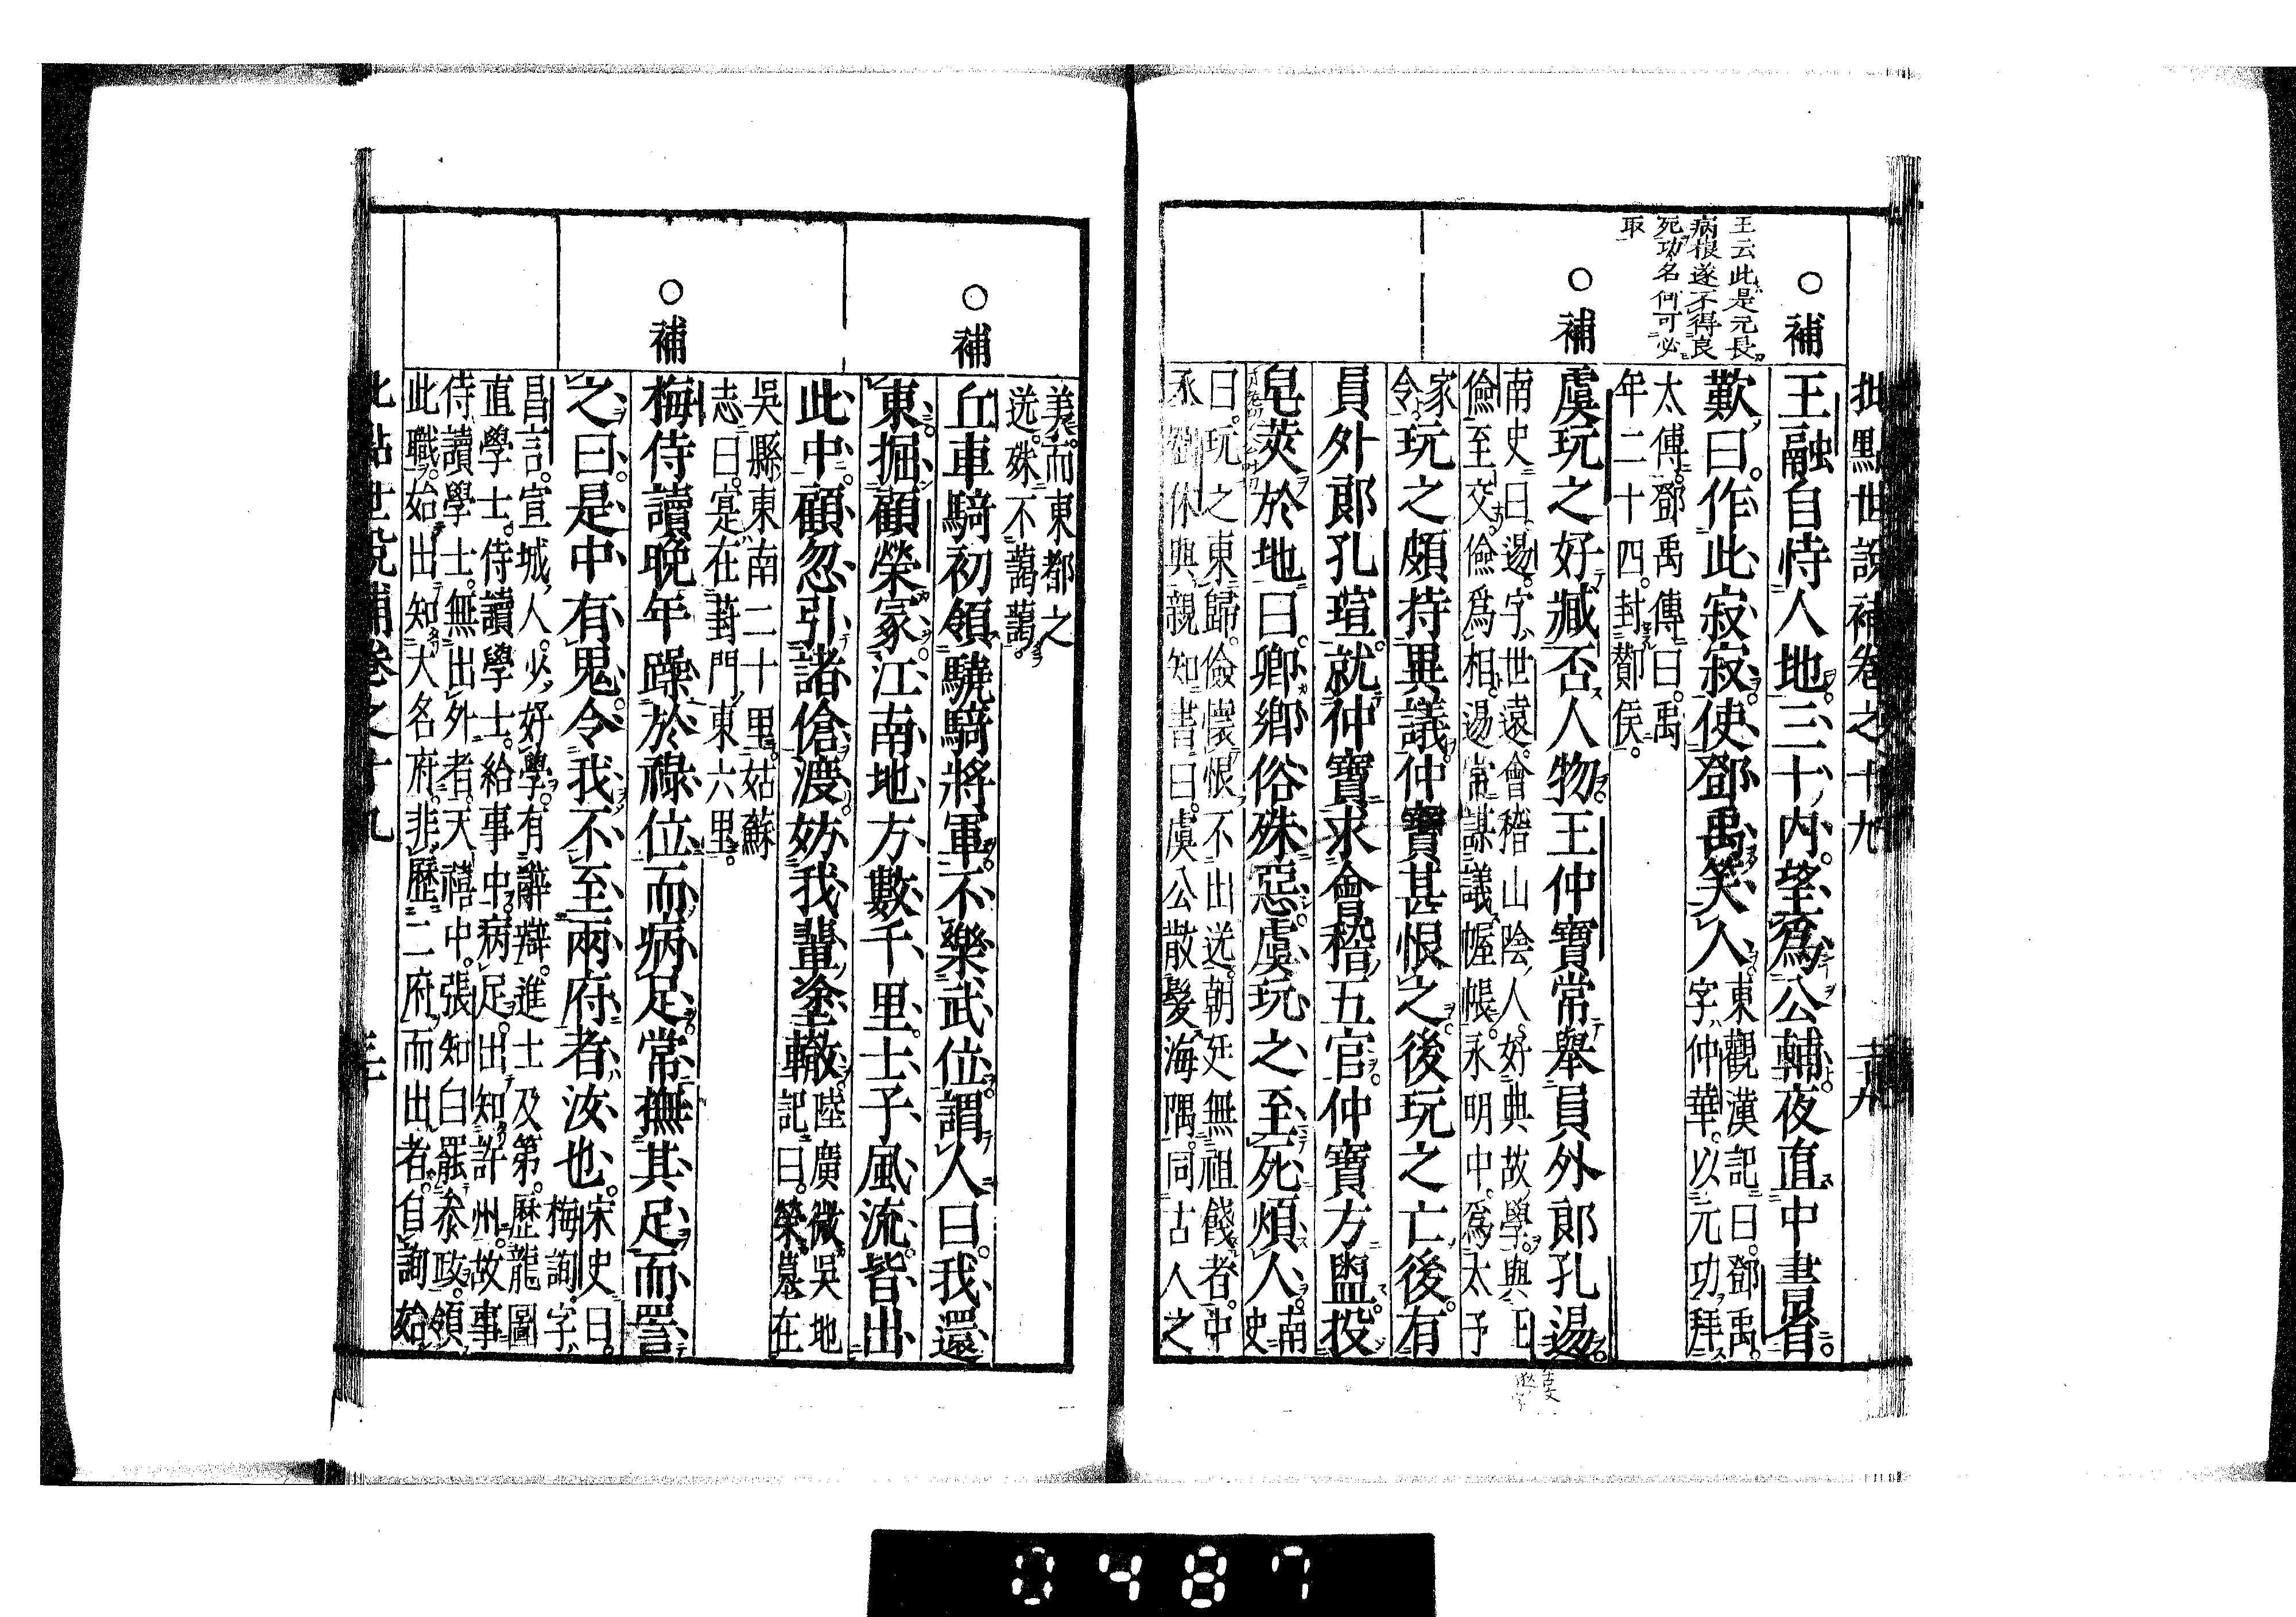 批點世說補卷之十九
王云此是元長
病根遂不得良
死功名何可必
取
○補
王融自恃人地三十內望爲公輔夜直中書省
歎曰作此寂寂使鄧禹笑人
東觀漢記曰鄧禹
字仲華以元功拜
太傅鄧禹傳曰禹
年二十四封酇侯
○補
虞玩之好臧否人物王仲寶常舉員外郎孔逷
南史曰逷字世遠會稽山陰人好典故學與王
儉至交儉爲相逷常謀議幄帳永明中爲太子
家
令
玩之頗持異議仲寶甚恨之後玩之亡後有
員外郎孔瑄就仲寶求會稽五官仲寶方盥投
皂莢於地曰卿鄉俗殊惡虞玩之至死煩人
南
史
曰玩之東歸儉懷恨不出送朝廷無祖餞者中
丞劉休與親知書曰虞公散髮海隅同古人之
美而東都之
送殊不藹藹
○補
丘車騎初領驍騎將軍不樂武位謂人曰我還
東掘顧榮冢江南地方數千里士子風流皆出
此中顧忽引諸傖渡妨我輩塗轍
陸廣微吳地
記曰榮墓在
吳縣東南二十里姑蘇
志曰寔在葑門東六里
○補
梅侍讀晚年躁於祿位而病足常撫其足而詈
之曰是中有鬼令我不至兩府者汝也
宋史曰
梅詢字
昌言宣城人少好學有辭辯進士及第歷龍圖
直學士侍讀學士給事中病足出知許州故事
侍讀學士無出外者天禧中張知白罷參政領
此職始出知大名府非歷二府而出者自詢始
批點世說補卷之十九